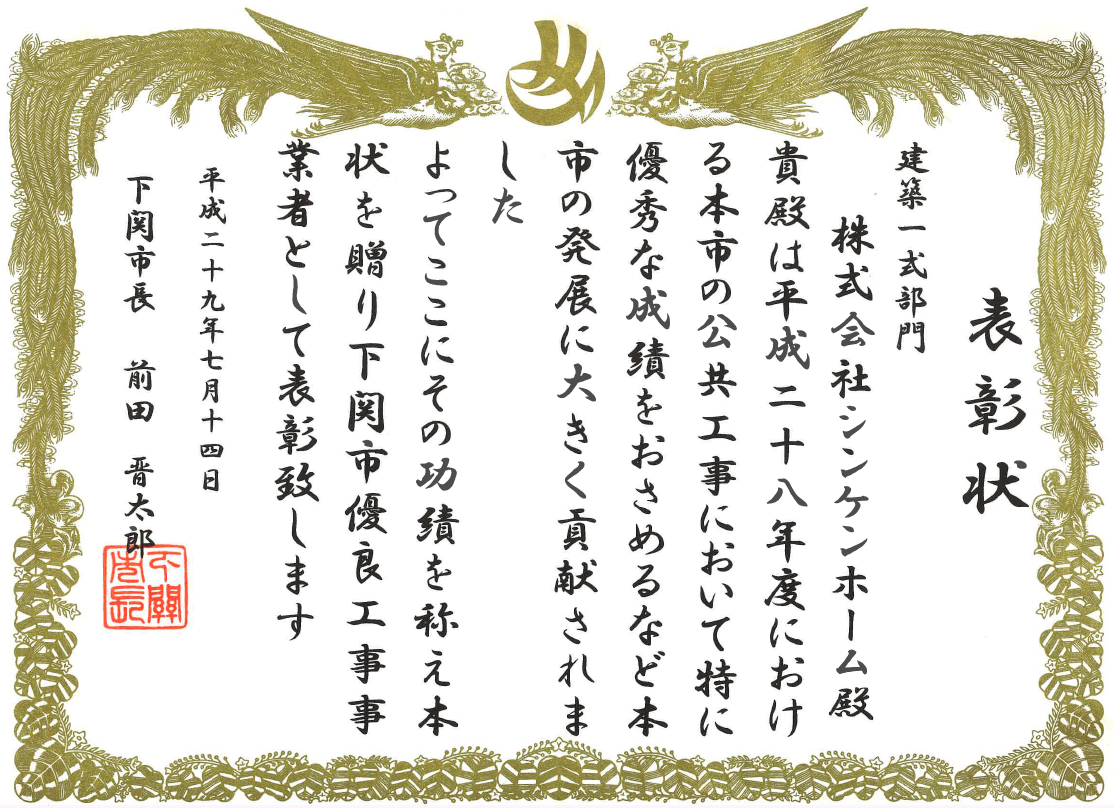 表彰状
建築一式部門
株式会社シンケンホーム殿
貴殿は平成二十八年度におけ
る本市の公共工事において特に
優秀な成績をおさめるなど本
市の発展に大きく貢献されま
した
よってここにその功績を称え本
状を贈り下関市優良工事事
業者として表彰致します
平成二十九年七月十四日
下関市長 前田 晋太郎
下關
市長